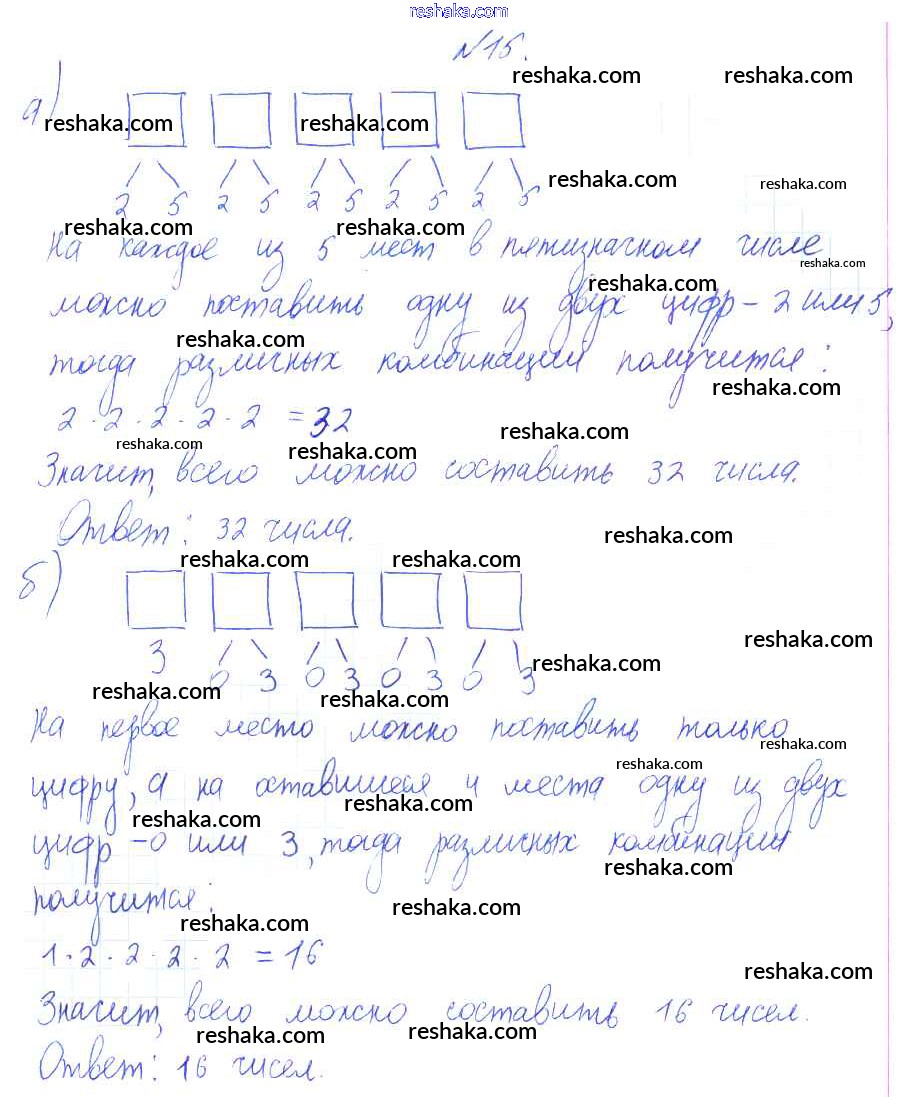 reshaka.com
№15.
reshaka.com reshaka.com
а)
reshaka.com reshaka.com
2 5 2 5 2 5 2 5 2 5
reshaka.com
reshaka.com
reshaka.com reshaka.com
На каждое из 5 мест в пятизначном числе
reshaka.com
reshaka.com
можно поставить одну из двух цифр - 2 или 5,
reshaka.com
тогда различных комбинаций получится:
reshaka.com
2 · 2 · 2 · 2 · 2 = 32
reshaka.com
reshaka.com reshaka.com
Значит, всего можно составить 32 числа.
Ответ: 32 числа.
reshaka.com
reshaka.com reshaka.com
б)
reshaka.com
3 0 3 0 3 0 3 0 3
reshaka.com
reshaka.com reshaka.com
На первое место можно поставить только
reshaka.com
reshaka.com
цифру, а на оставшиеся 4 места одну из двух
reshaka.com reshaka.com
цифр - 0 или 3, тогда различных комбинаций
reshaka.com
получится:
reshaka.com reshaka.com
1 · 2 · 2 · 2 · 2 = 16
reshaka.com
Значит, всего можно составить 16 чисел.
reshaka.com reshaka.com
Ответ: 16 чисел.